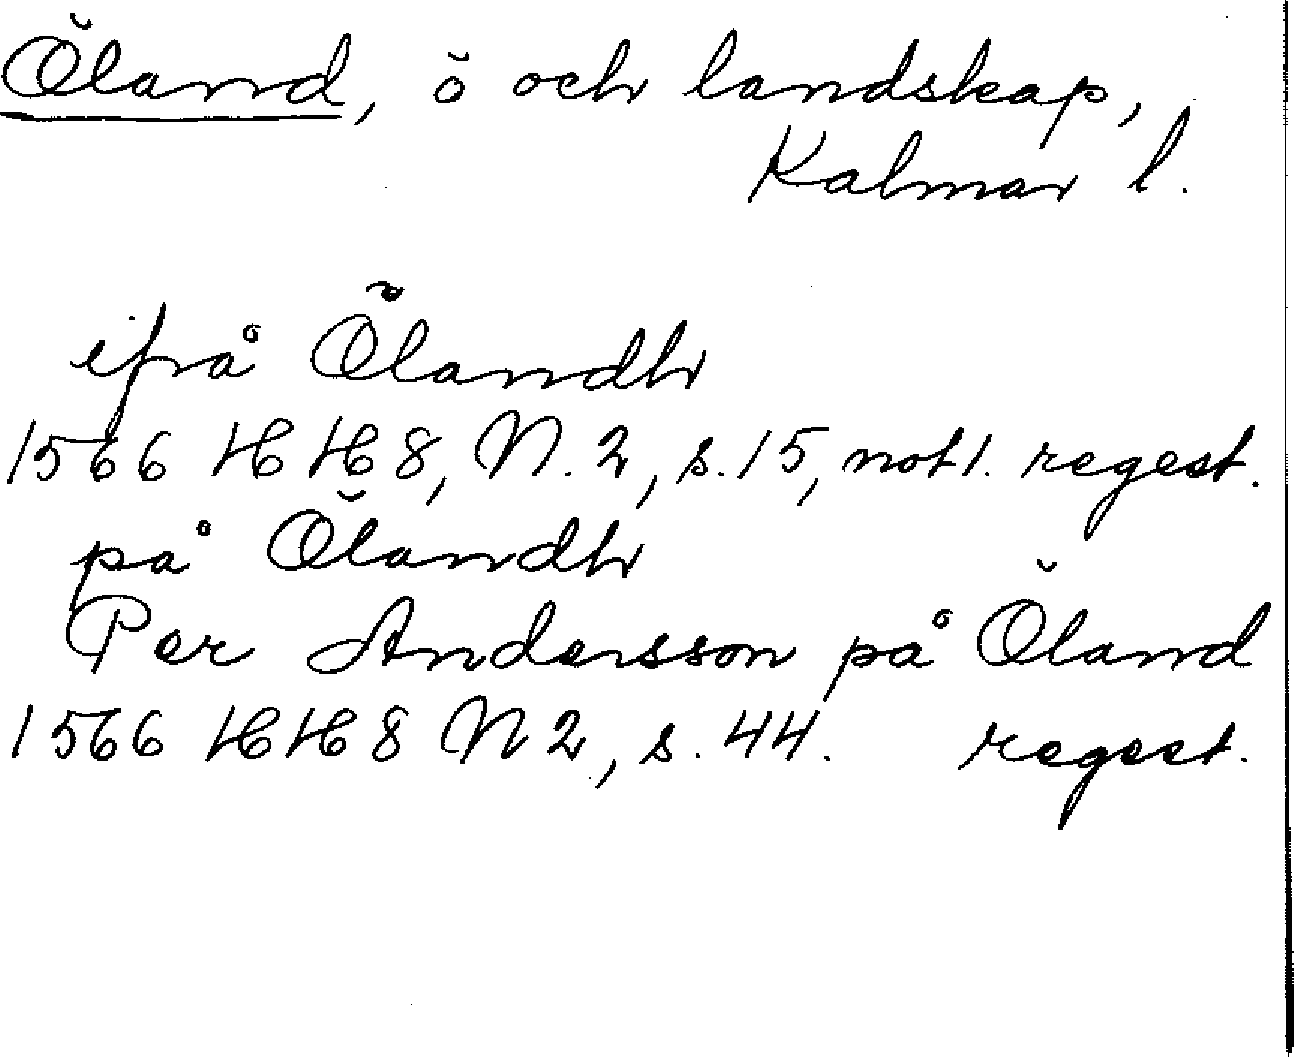 Öland, ö och landskap,
Kalmar l.
ifrå Ölandh
1566 HH 8, N. 2, s. 15, not 1. regest.
på Ölandh
Per Andersson på Öland
1566 HH 8 N 2, s. 44. regest.